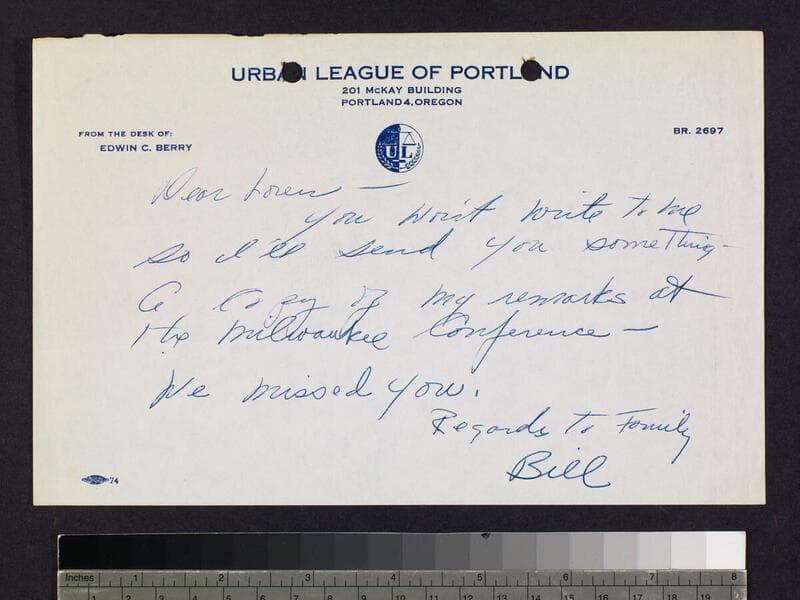 URBAN LEAGUE OF PORTLAND
201 McKAY BUILDING
PORTLAND 4, OREGON
FROM THE DESK OF:
EDWIN C. BERRY
BR. 2697
UL
Dear Loren —
You won't write to me
so I'll send you something—
A copy of my remarks at
the Milwaukee Conference —
We missed you.
Regards to Family
Bill
74
Inches 1 2 3 4 5 6 7 8
1 2 3 4 5 6 7 8 9 10 11 12 13 14 15 16 17 18 19